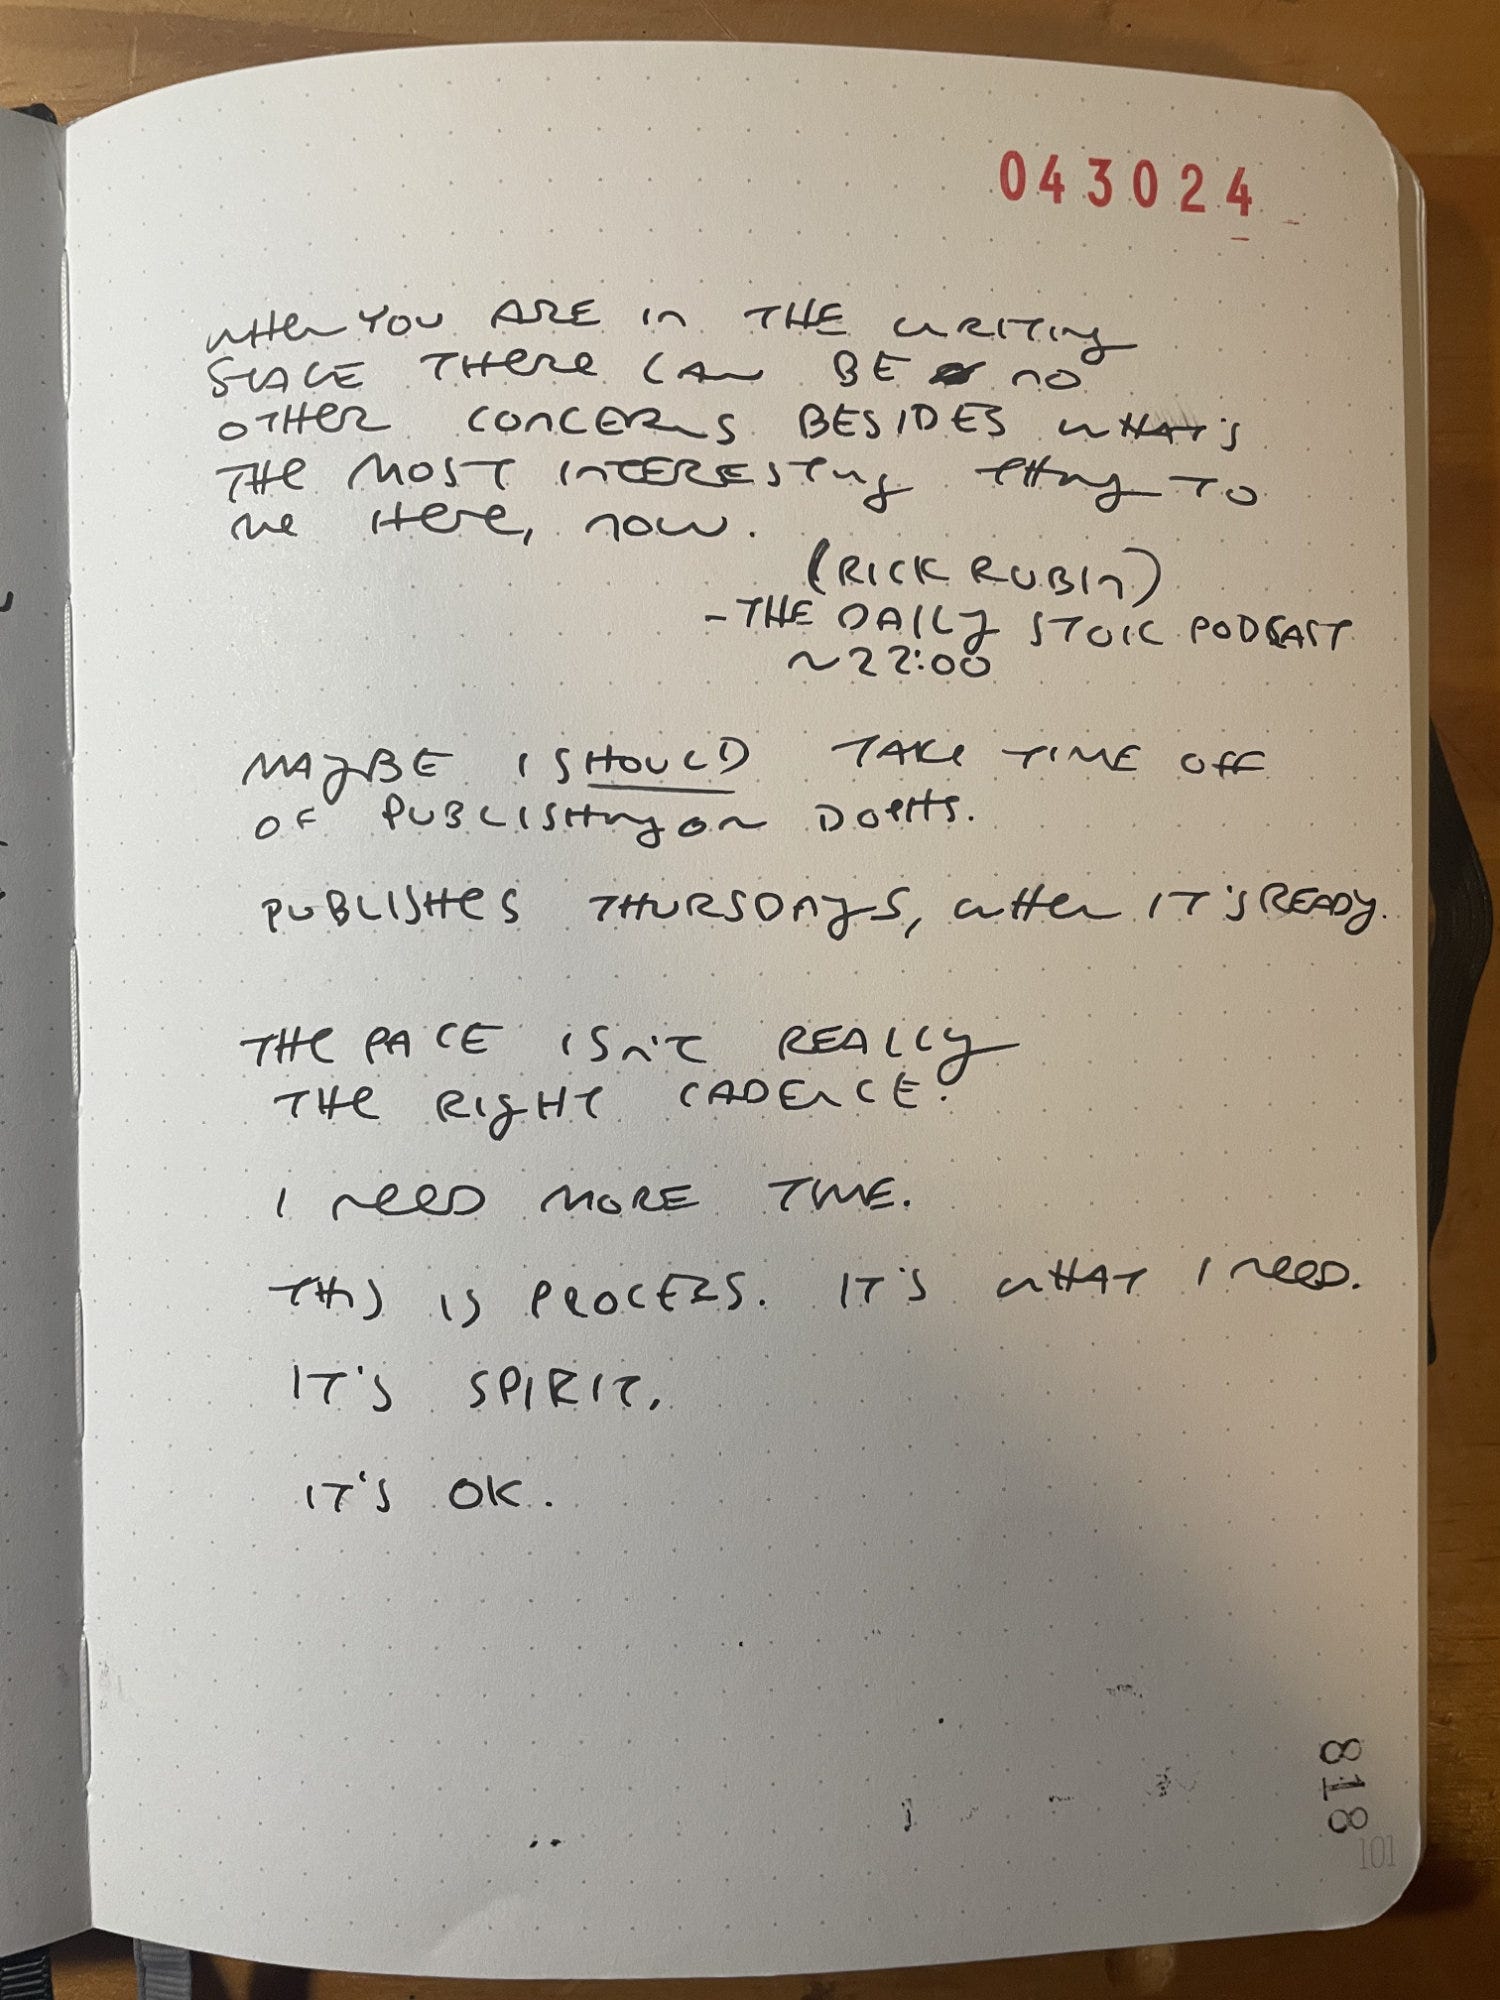 043024
WHEN YOU ARE IN THE WRITING
SPACE THERE CAN BE NO
OTHER CONCERNS BESIDES WHAT'S
THE MOST INTERESTING THING TO
ME HERE, NOW.
(RICK RUBIN)
- THE DAILY STOIC PODCAST
~22:00
MAYBE I SHOULD TAKE TIME OFF
OF PUBLISHING ON
PUBLISHES THURSDAYS, WHEN IT'S READY.
THE PACE ISN'T REALLY
THE RIGHT CADENCE.
I NEED MORE TIME.
THIS IS PROCESS. IT'S WHAT I NEED.
IT'S SPIRIT.
IT'S OK.
818
101